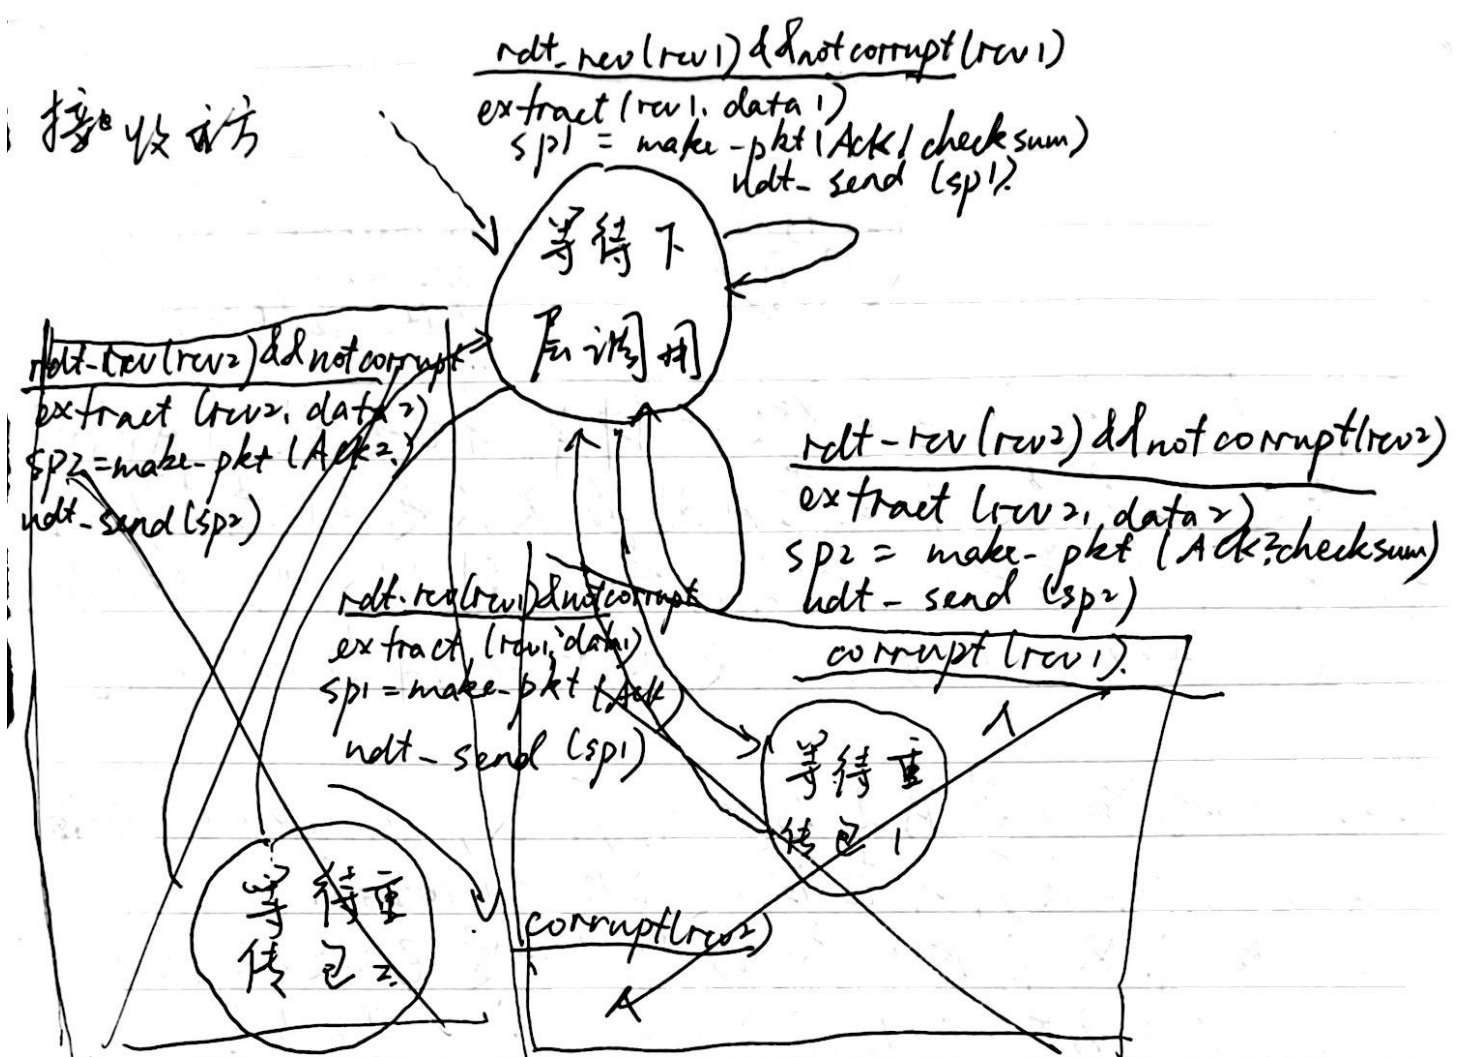 接收方
rdt_rcv(rcv1)&&notcorrupt(rcv1)
extract(rcv1, data1)
sp1 = make-pkt(Ack1checksum)
udt-send(sp1).
等待下
层调用
rdt-rcv(rcv2)&&notcorrupt
extract(rcv2, data2)
sp2=make-pkt(Ack2.)
udt-send(sp2)
rdt-rcv(rcv2)&&notcorrupt(rcv2)
extract(rcv2, data2)
sp2 = make-pkt(Ack2checksum)
udt-send(sp2)
rdt-rcv(rcv1)&notcorrupt
extract(rcv1, data1)
sp1=make-pkt(Ack)
udt-send(sp1)
corrupt(rcv1).
等待重
传包1
等待重
传包2
corrupt(rcv2)